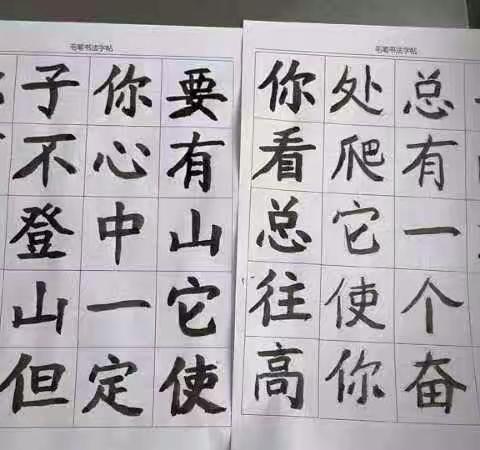 毛笔书法字帖
子不登山但
你心中一定
要有山它使
毛笔书法字帖
你看总往高
处爬它使你
总有一个奋